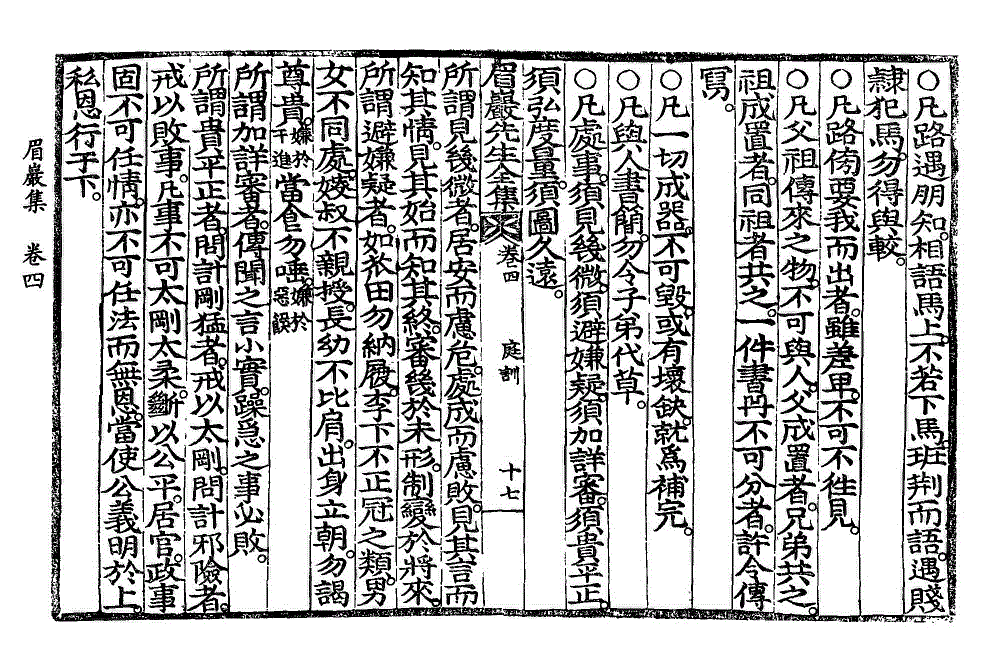 ○凡路遇朋知。相語馬上。不若下馬。班荆而語。遇賤
隷犯馬。勿得與較。
○凡路傍要我而出者。雖差卑。不可不徃見。
○凡父祖傳來之物。不可與人。父成置者。兄弟共之。
祖成置者。同祖者共之。一件書冊不可分者。許令傳
冩。
○凡一切成器。不可毀。或有壞缺。就爲補完。
○凡與人書簡。勿令子弟代草。
○凡處事。須見幾微。須避嫌疑。須加詳審。須貴平正。
須弘度量。須圖久遠。
眉巖先生全集 卷四 庭訓 十七
所謂見幾微者。居安而慮危。處成而慮敗。見其言而
知其情。見其始而知其終。審幾於未形。制變於將來。
所謂避嫌疑者。如苽田勿納履。李下不正冠之類。男
女不同處。嫂叔不親授。長幼不比肩。出身立朝。勿謁
尊貴。嫌於干進 當食勿唾。嫌於惡餤
所謂加詳審者。傳聞之言小實。躁急之事必敗。
所謂貴平正者。問計剛猛者。戒以太剛。問計邪險者。
戒以敗事。凡事不可太剛太柔。斷以公平。居官政事
固不可任情。亦不可任法而無恩。當使公義明於上。
私恩行于下。
眉巖集 卷四